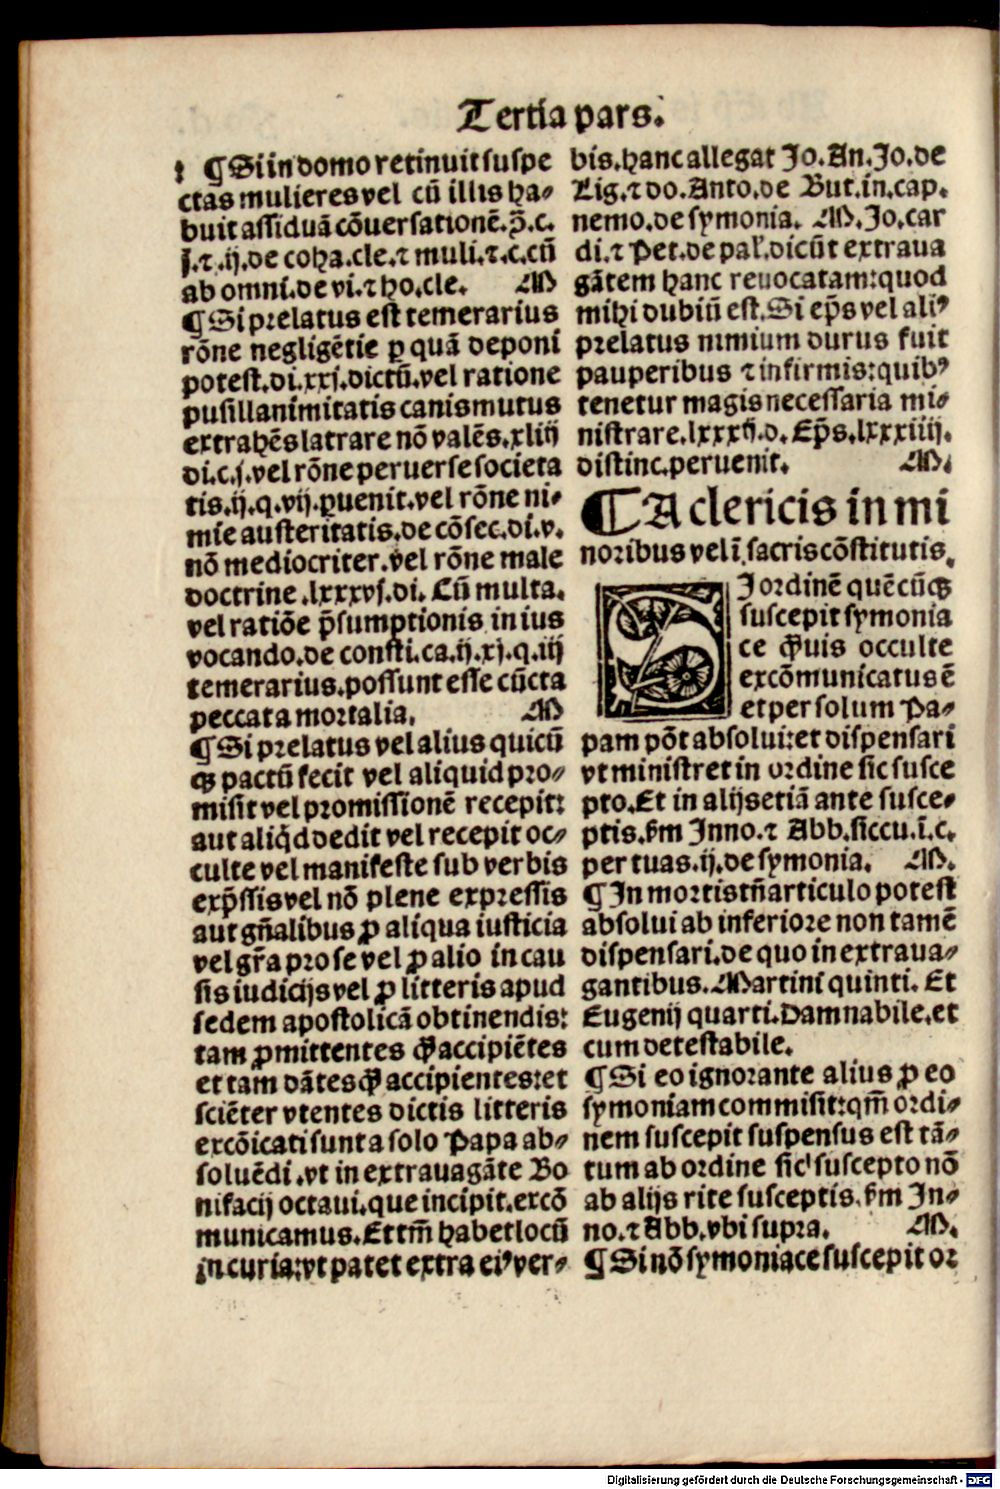 Tertia pars.
¶ Si in domo retinuit suspe
ctas mulieres vel cū illis ha-
buit assiduā cōuersationē. p̄. c.
j. ⁊ .ij. de coha. cle. ⁊ muli. ⁊. c. cū
ab omni. de vi. ⁊ ho. cle. M
¶ Si prelatus est temerarius
rōne negligētie ꝑ quā deponi
potest. di. xxj. dictū. vel ratione
pusillanimitatis canis mutus
extra hēs latrare nō valēs. xliij
di. c. j. vel rōne peruerse societa
tis. ij. q. vij. ꝑuenit. vel rōne ni-
mie austeritatis. de cōsec. di. v.
nō mediocriter. vel rōne male
doctrine .lxxxvj. di. Cū multa.
vel ratiōe p̄sumptionis in ius
vocando. de consti. ca. ij. xj. q. iij
temerarius. possunt esse cūcta
peccata mortalia. M
¶ Si prelatus vel alius quicū
qꝫ pactū fecit vel aliquid pro-
misit vel promissionē recepit:
aut aliq̇d dedit vel recepit oc-
culte vel manifeste sub verbis
exp̄ssis vel nō plene expressis
aut gn̄alibus ꝓ aliqua iusticia
vel gr̄a pro se vel ꝓ alio in cau
sis iudicijs vel ꝓ litteris apud
sedem apostolicā obtinendis:
tam ꝓmittentes ꝙ̄ accipiētes
et tam dātes ꝙ̄ accipientes: et
sciēter vtentes dictis litteris
excōicati sunt a solo Papa ab-
soluēdi .vt in extrauagāte Bo
nifacij octaui. que incipit. excō
municamus. Et tm̄ habet locū
in curia: vt patet extra eiꝰ ver-
bis. hanc allegat Jo. An. Jo. de
Lig. ⁊ do. Anto. de But. in. cap.
nemo. de symonia. M. Jo. car
di. ⁊ Pet. de pal'. dicūt extraua
gātem hanc reuocatam: quod
mihi dubiū est. Si ep̄s vel aliꝰ
prelatus nimium durus fuit
pauperibus ⁊ infirmis: quibꝰ
tenetur magis necessaria mi-
nistrare. lxxxij. d. Ep̄s. lxxxiiij.
distinc. peruenit. M.
¶ A clericis in mi
noribus vel ī sacris cōstitutis.
SI ordinē quēcūqꝫ
suscepit symonia
ce ꝙ̄uis occulte
excōmunicatus ē
et per solum Pa-
pam pōt absolui: et dispensari
vt ministret in ordine sic susce
pto. Et in alijs etiā ante susce-
ptis. ẜm Inno. ⁊ Abb. siccu. ī. c.
per tuas. ij. de symonia. M.
¶ In mortis tn̄ articulo potest
absolui ab inferiore non tamē
dispensari. de quo in extraua-
gantibus. Martini quinti. Et
Eugenij quarti. Damnabile. et
cum detestabile.
¶ Si eo ignorante alius ꝓ eo
symoniam commisit: qm̄ ordi-
nem suscepit suspensus est tā-
tum ab ordine sic suscepto nō
ab alijs rite susceptis. ẜm In-
no. ⁊ Abb. vbi supra. M.
¶ Si nō symoniace suscepit or
Digitalisierung gefördert durch die Deutsche Forschungsgemeinschaft - DFG